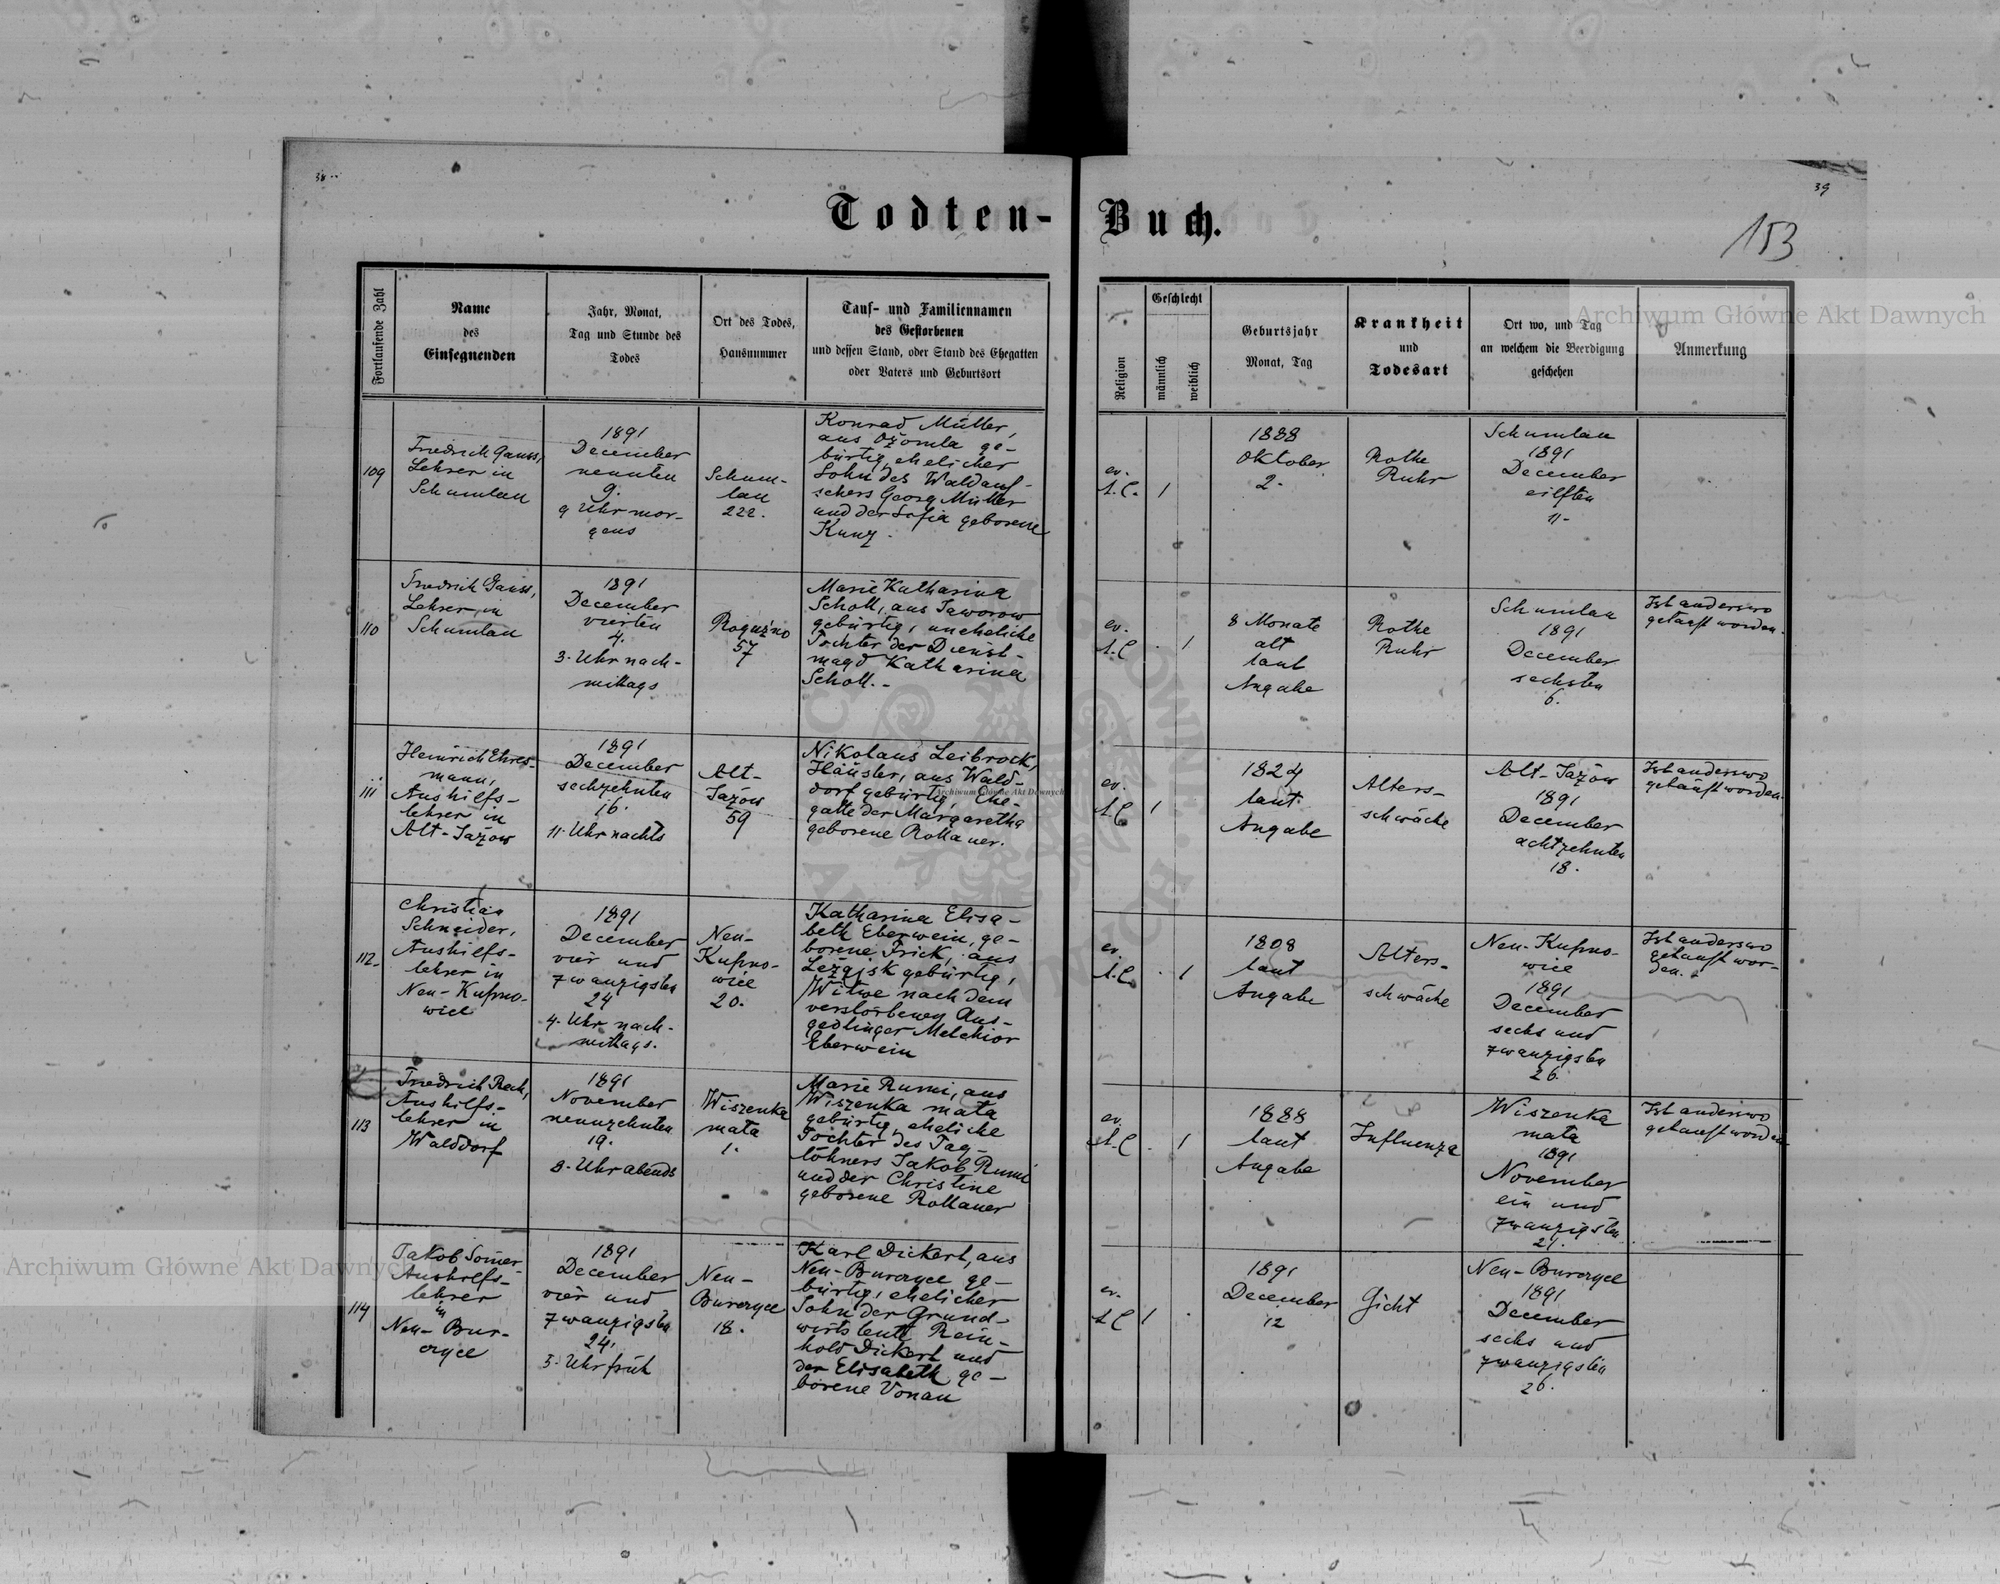 38
39
Todten-Buch.
153
Fortlaufende Zahl
Name
des
Einsegnenden
Jahr, Monat,
Tag und Stunde des
Todes
Ort des Todes,
Hausnummer
Tauf- und Familiennamen
des Gestorbenen
und dessen Stand, oder Stand des Ehegatten
oder Vaters und Geburtsort
Religion
Geschlecht
männlich
weiblich
Geburtsjahr
Monat, Tag
Krankheit
und
Todesart
Ort wo, und Tag
an welchem die Beerdigung
geschehen
Anmerkung
109
Friedrich Gauss,
Lehrer in
Schumlau
1891
December
neunten
9.
9 Uhr mor-
gens
Schum-
lau
222.
Konrad Müller,
aus Ożomla ge-
bürtig, ehelicher
Sohn des Waldauf-
sehers Georg Müller
und der Sofia geborene
Kunz.
ev.
A.C.
1
1888
Oktober
2.
Rothe
Ruhr
Schumlau
1891
December
eilften
11.
110
Friedrich Gauss,
Lehrer in
Schumlau
1891
December
vierten
4.
3. Uhr nach-
mittags
Roguźno
57
Marie Katharina
Scholl, aus Jaworow
gebürtig, uneheliche
Tochter der Dienst-
magd Katharina
Scholl.-
ev.
A.C
1
8 Monate
alt
laut
Angabe
Rothe
Ruhr
Schumlau
1891
December
sechsten
6.
Ist anderswo
getauft worden.
111
Heinrich Ehres-
mann,
Aushilfs-
lehrer in
Alt-Jażow
1891
December
sechzehnten
16.
11. Uhr nachts
Alt-
Jażow
59
Nikolaus Leibrock,
Häusler, aus Wald-
dorf gebürtig, Ehe-
gatte der Margaretha
geborene Rollauer.
ev.
A.C
1
1824
laut
Angabe
Alters-
schwäche
Alt-Jażow
1891
December
achtzehnten
18.
Ist anderswo
getauft worden.
112.
Christian
Schneider,
Aushilfs-
lehrer in
Neu-Kupno-
wice
1891
December
vier und
zwanzigsten
24
4. Uhr nach-
mittags.
Neu-
Kupno-
wice
20.
Katharina Elisa-
beth Eberwein, ge-
borene Frick, aus
Leżajsk gebürtig,
Witwe nach dem
verstorbenen Aus-
gedinger Melchior
Eberwein
ev.
A.C.
1
1808
laut
Angabe
Alters-
schwäche
Neu-Kupno-
wice
1891
December
sechs und
zwanzigsten
26.
Ist anderswo
getauft wor-
den.
113
Friedrich Rech,
Aushilfs-
lehrer in
Walddorf
1891
November
neunzehnten
19.
8. Uhr abends
Wiszenka
mała
1.
Marie Rumi, aus
Wiszenka mała
gebürtig, eheliche
Tochter des Tag-
löhners Jakob Rumi
und der Christine
geborene Rollauer
ev.
A.C
1
1888
laut
Angabe
Influenza
Wiszenka
mała
1891
November
ein und
zwanzigsten
21.
Ist anderswo
getauft worden
114
Jakob Som̅er
Aushilfs-
lehrer
in
Neu-Bur-
czyce
1891
December
vier und
zwanzigsten
24.
5. Uhr früh
Neu-
Burczyce
18.
Karl Dickert, aus
Neu-Burczyce ge-
bürtig, ehelicher
Sohn der Grund-
wirtsleute Rein-
hold Dickert und
der Elisabeth ge-
borene Vonau
ev.
A.C
1
1891
December
12
Gicht
Neu-Burczyce
1891
December
sechs und
zwanzigsten
26.
Archiwum Główne Akt Dawnych
Archiwum Główne Akt Dawnych
Archiwum Główne Akt Dawnych